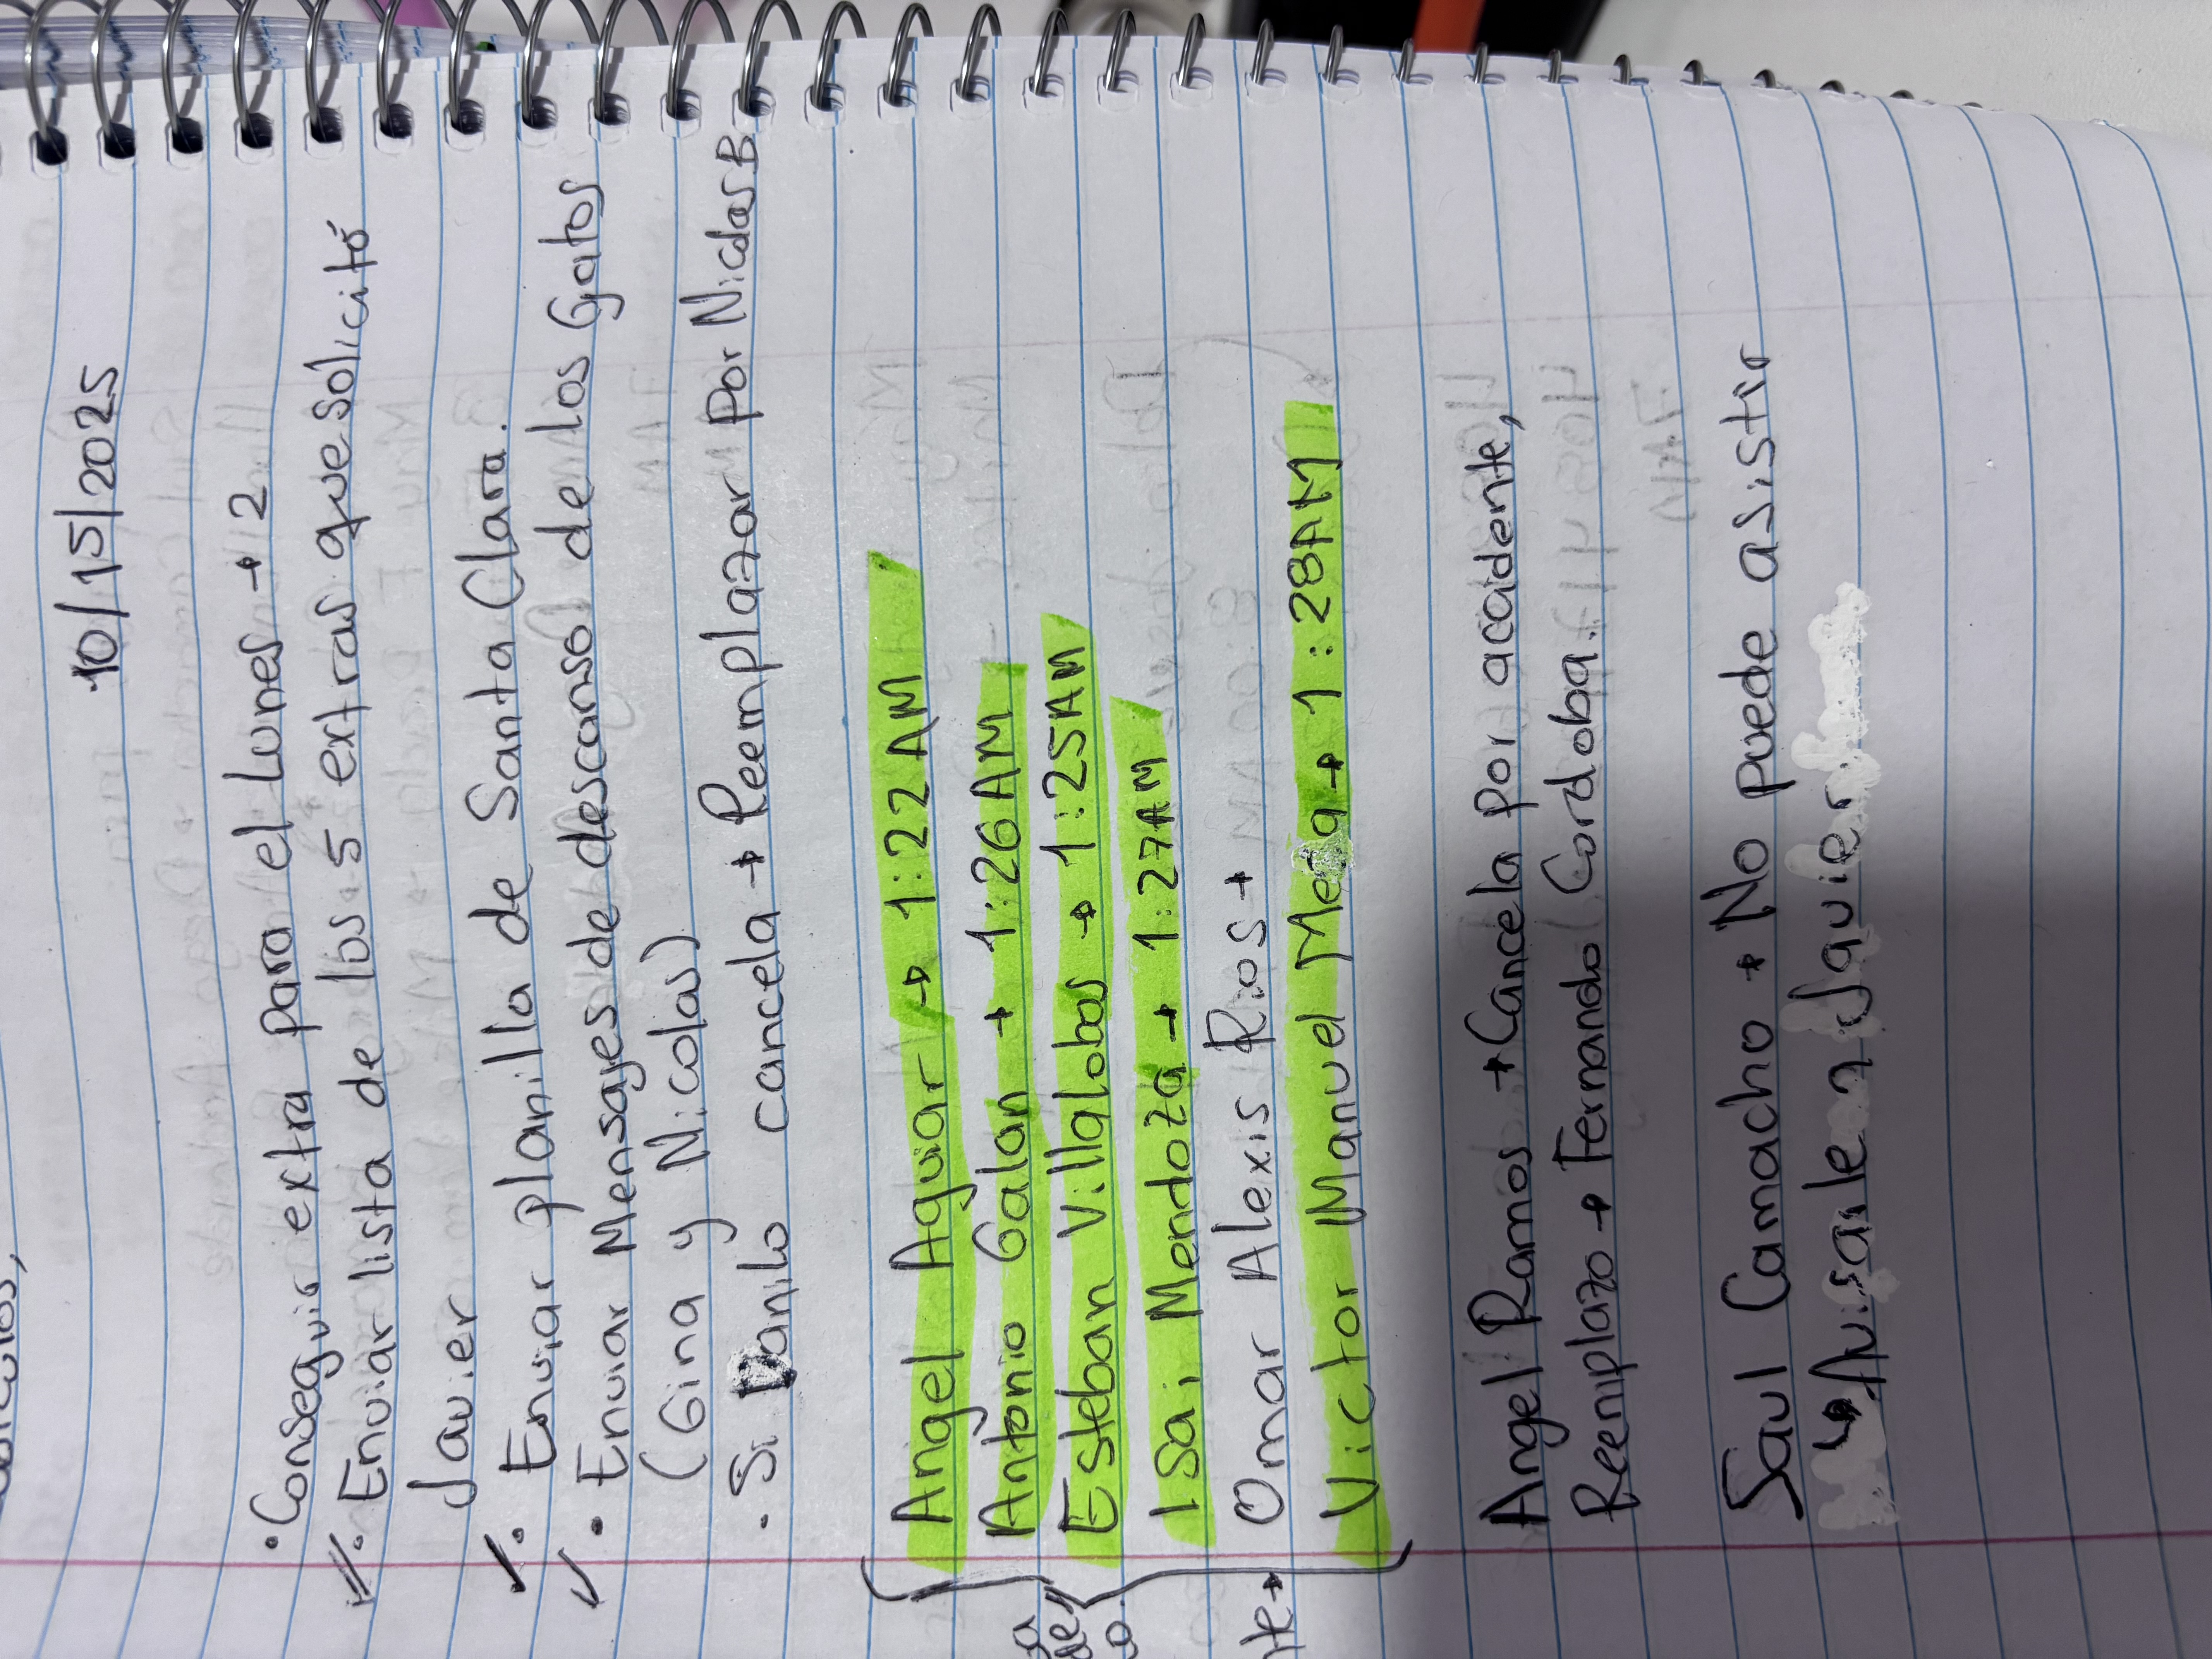 10/15/2025
• Conseguir extra para el Lunes → 2
✓• Enviar lista de los 5 extras que solicitó
Javier
✓• Enviar planilla de Santa Clara.
✓• Enviar Mensajes de descanso de los Gatos
(Gina y Nicolas)
• Si Danilo cancela → Reemplazar por Nicolas B.
Angel Aguiar → 1:22 AM
Antonio Galan → 1:26 AM
Esteban Villalobos → 1:25 AM
Isai Mendoza → 1:27 AM
Omar Alexis Rios →
Victor Manuel Meza → 1:28 AM
Angel Ramos → Cancela por accidente,
Reemplazo → Fernando Cordoba.
Saul Camacho → No puede asistir
↳ Avisarle a Javier